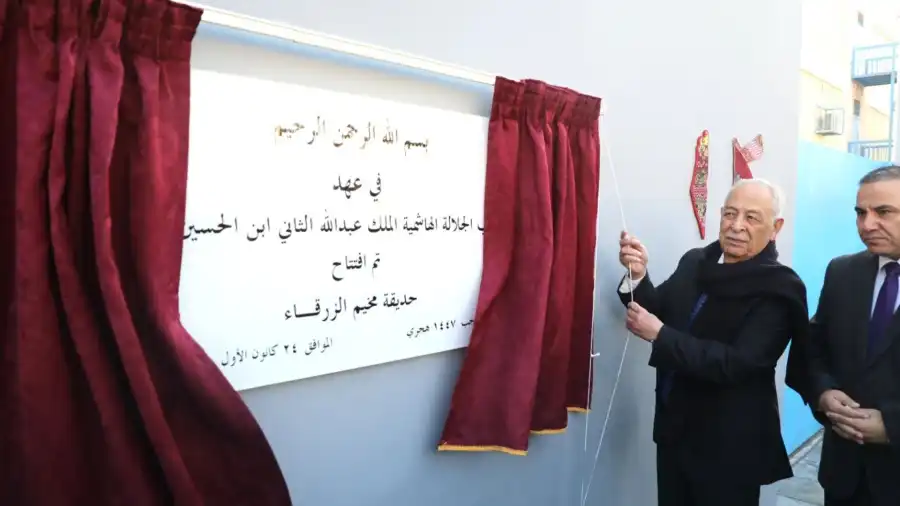 بسم الله الرحمن الرحيم
في عهد
ب الجلالة الهاشمية الملك عبدالله الثاني ابن الحسين
تم افتتاح
حديقة مخيم الزرقاء
جب ١٤٤٧ هجري
الموافق ٢٤ كانون الأول